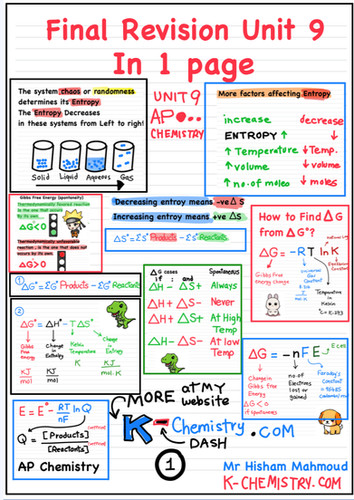 Final Revision Unit 9
In 1 page
The system chaos or randomness
determines its Entropy
The Entropy Decreases
in these systems from Left to right!
Solid Liquid Aqueous Gas
UNIT 9
AP
CHEMISTRY
More factors affecting Entropy
increase decrease
ENTROPY ↑ ↓
↑ Temperature ↓ Temp.
↑ volume ↓ volume
↑ no. of moles ↓ moles
Gibbs Free Energy (spontaneity)
Thermodynamically favored reaction
is the one that occurs
by its own
ΔG<0
Thermodynamically unfavorable
reaction, is the one that does not
occurs by its own.
ΔG>0
Decreasing entroy means -ve Δ S
Increasing entroy means +ve ΔS
ΔS°=ΣS°Products - ΣS°Reactants
How to Find ΔG
from ΔG°?
ΔG = -RT lnK
Gibbs Free
Energy change
Universal
Gas
Constant
Temperature
in
Kelvin
① ΔG°=ΣG°Products - ΣG°Reactants
②
ΔG° = ΔH° - TΔS°
Gibbs
Free
Energy
Change
in
Enthalpy
Kelvin
Temperature
Change
in
Entropy
KJ
mol
KJ
mol
K
KJ
mol.K
ΔG cases Spontaneous
if : and
ΔH - ΔS+ Always
ΔH+ ΔS- Never
ΔH+ ΔS+ At high Temp
ΔH- ΔS- At low Temp
ΔG = -nFE
Change in
Gibbs Free
energy
ΔG<0
if spontaneous
no. of
Electrons
lost or
gained
Faraday's
Constant
E = E° - RT/nF lnQ
Q = [Products]/[Reactants]
AP Chemistry
MORE AT MY
website
K-Chemistry.COM
DASH
1
Mr Hisham Mahmoud
K-CHEMISTRY.COM